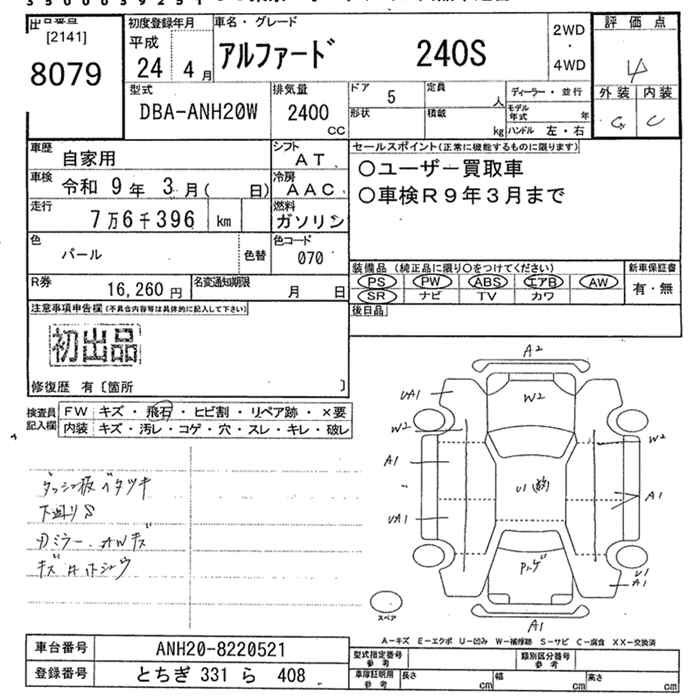 [2141]
8079
初度登録年月
平成
24 4月
車名・グレード
アルファード 240S
2WD
・
4WD
評価点
4
外装 内装
C
型式
DBA-ANH20W
排気量
2400
CC
ドア
5
定員
人
形状
積載
kg
ディーラー・並行
モデル年式 年
ハンドル 左・右
車歴
自家用
シフト
AT
車検
令和 9年 3月( 日)
冷房
AAC
走行
7万6千396 km
燃料
ガソリン
色
パール
色替
色コード
070
R券
16,260 円
名変通知期限
月 日
セールスポイント(正常に機能するものに限ります)
○ユーザー買取車
○車検R9年3月まで
装備品(純正品に限り○をつけてください)
PS PW ABS エアB AW
SR ナビ TV カワ
新車保証書
有・無
後日品
注意事項申告欄(不具合内容等は具体的に記入して下さい)
初出品
修復歴 有〔箇所 〕
検査員記入欄
FW キズ・飛石・ヒビ割・リペア跡・×要
内装 キズ・汚レ・コゲ・穴・スレ・キレ・破レ
ダッシュ板ベタツキ
下廻りS
ミラー・AWキズ
A2
UA1
W2
W2
W2
A1
U1
A1
UA1
U1
A1
A1
スペア
A-キズ E-エクボ U-凹み W-補修跡 S-サビ C-腐食 XX-交換済
車台番号 ANH20-8220521
登録番号 とちぎ 331 ら 408
型式指定番号 参考
類別区分番号 参考
車庫証明用 参考
長さ cm 幅 cm 高さ cm